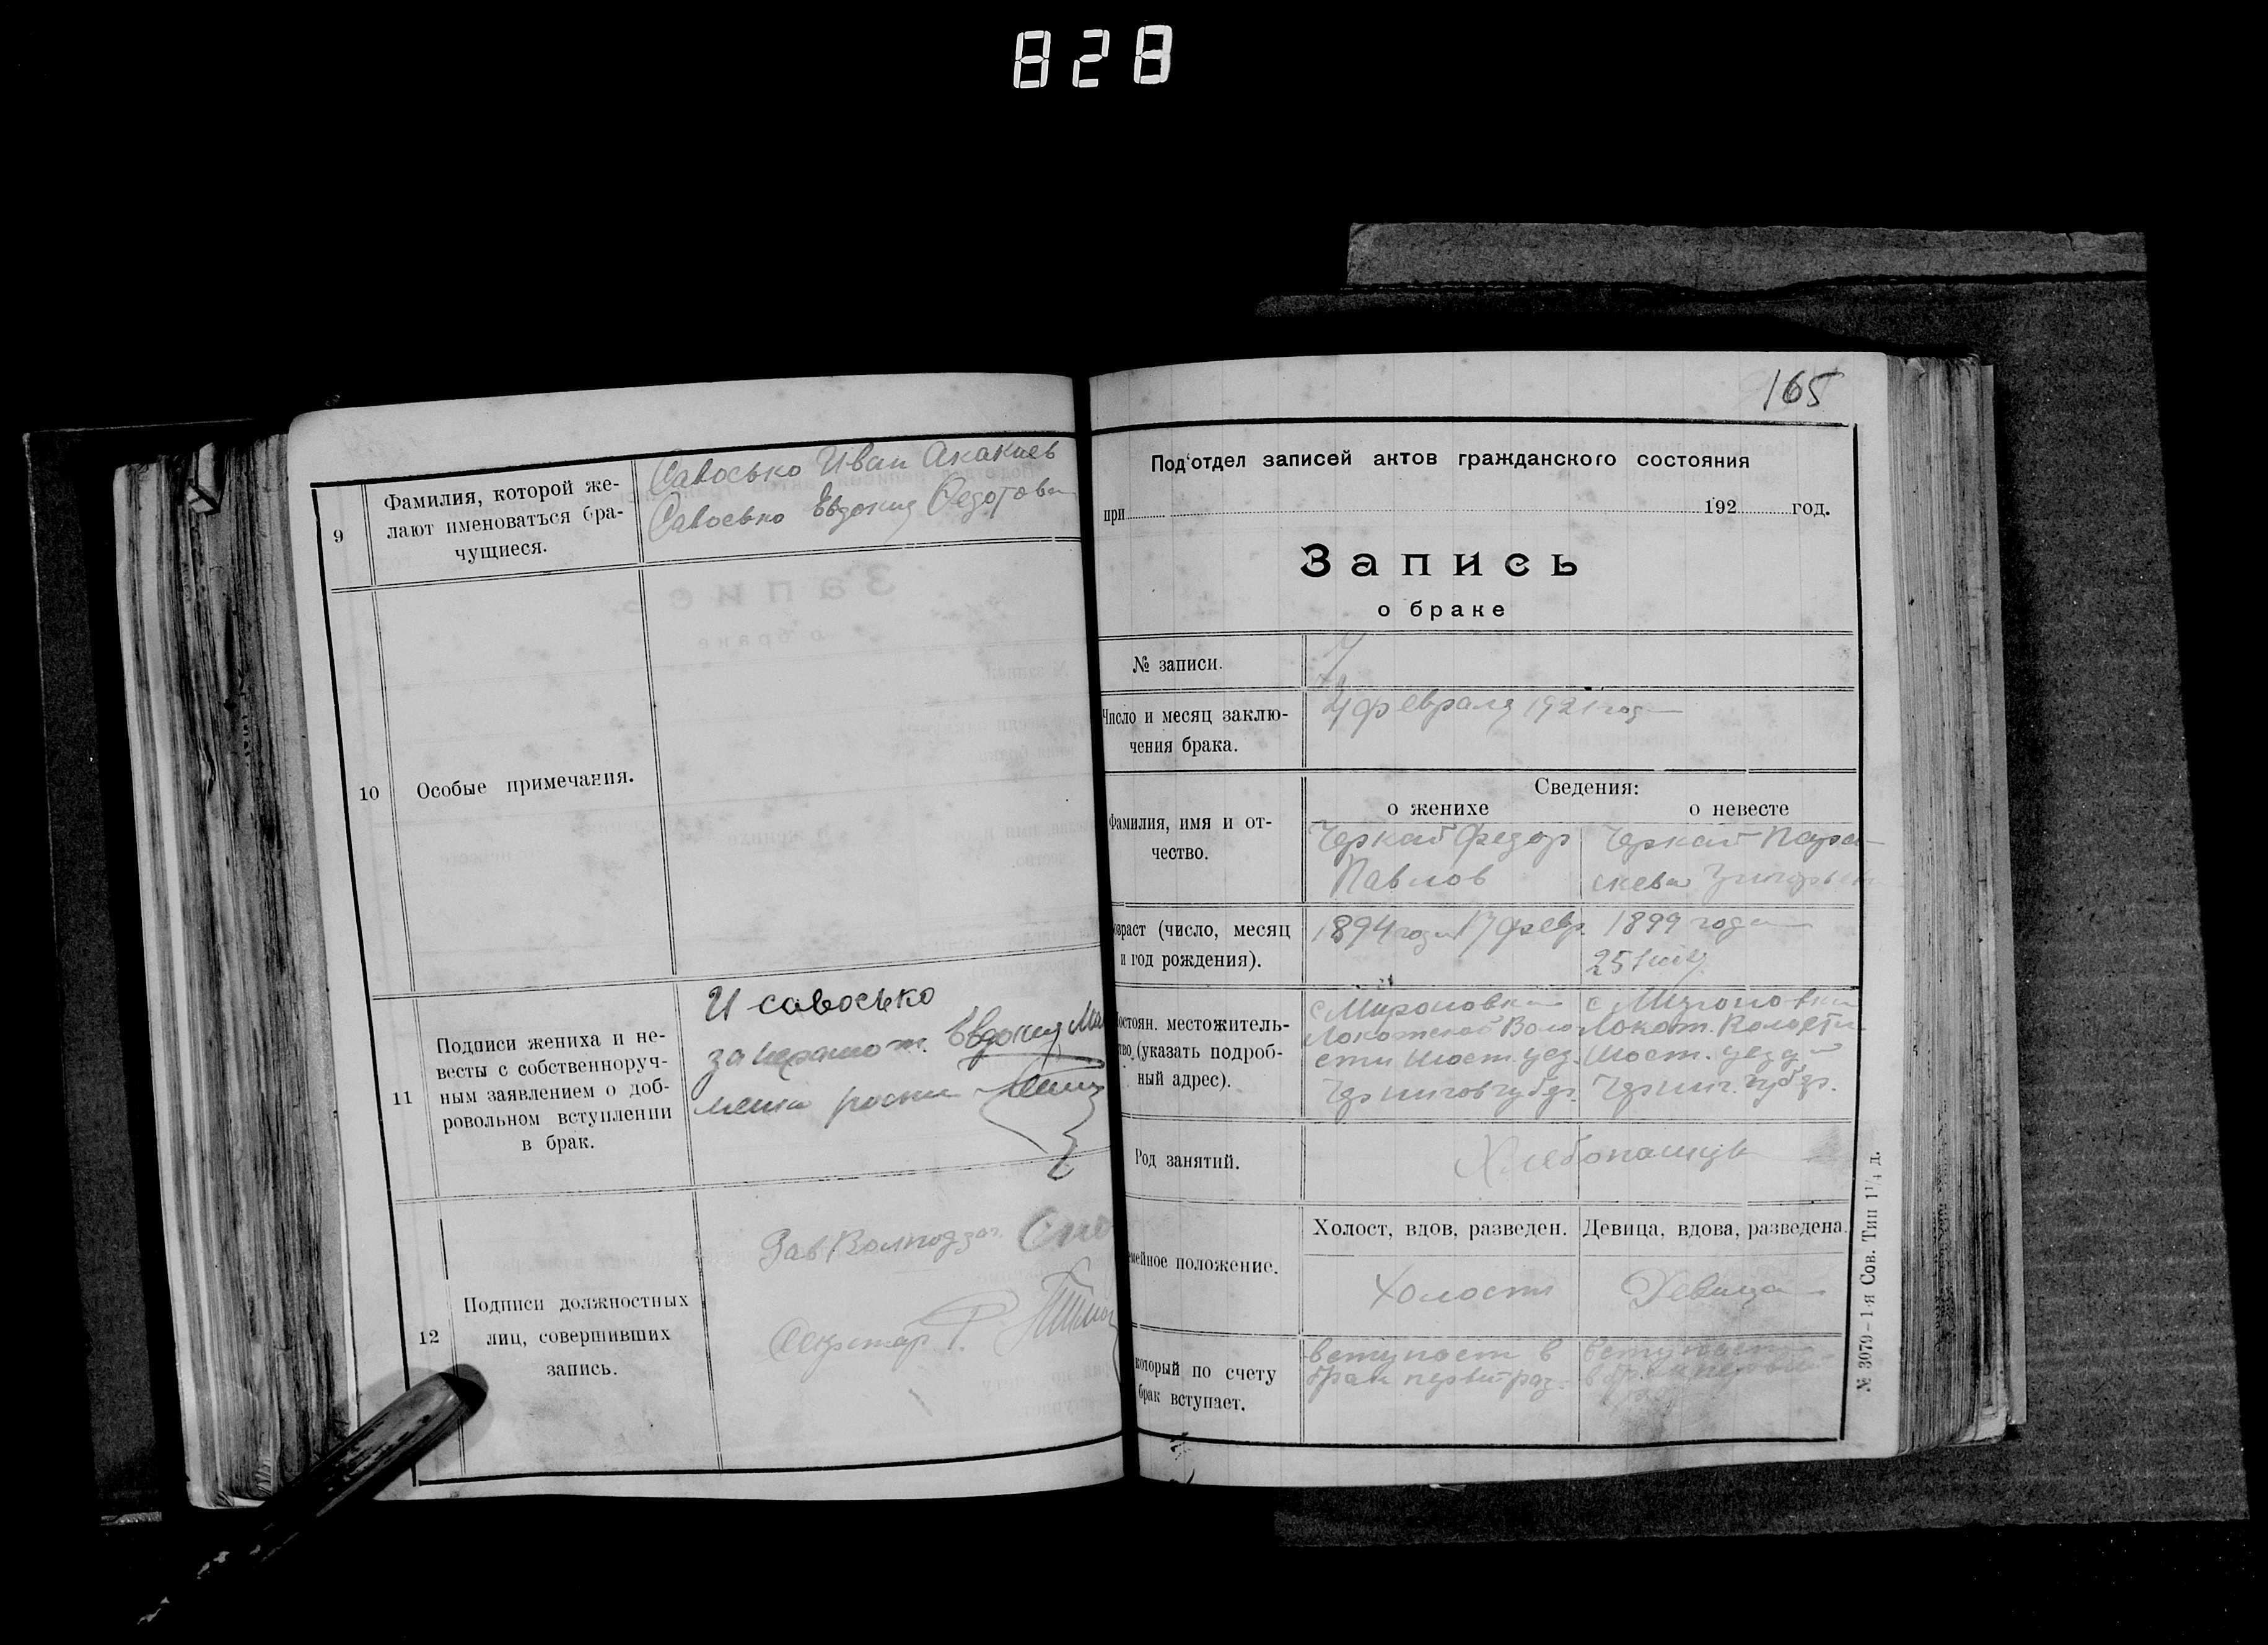 828
9
Фамилия, которой же-
лают именоваться бра-
чущиеся.
Савосько Иван Акакиев
Савосько Евдокия Федотова
10
Особые примечания.
11
Подписи жениха и не-
весты с собственноруч-
ным заявлением о доб-
ровольном вступлении
в брак.
И савосько
за неграмот. Евдокия
12
Подписи должностных
лиц, совершивших
запись.
Зав
Секретар
165
Под'отдел записей актов гражданского состояния
при 192 год.
Запись
о браке
№ записи.
7
Число и месяц заклю-
чения брака.
4 февраля 1921 года
Сведения:
о женихе о невесте
Фамилия, имя и от-
чество.
Черкай Федор
Павлов
Черкай Пара-
скева
возраст (число, месяц
и год рождения).
1894 года 17 февр.
1899 года
25
Постоян. местожитель-
тво (указать подроб-
ный адрес).
с Мироновки
Локотской Воло
сти Мост. уез.
Чернигов губер.
с Мироновки
Локот. Волости
Мост. уезда
Черниг. губер.
Род занятий.
Хлебопашцы
мейное положение.
Холост, вдов, разведен. Девица, вдова, разведена.
Холост
Девица
который по счету
брак вступает.
вступает в
брак первый раз.
вступает
№ 3079–1-я Сов. Тип 1¹/₄ д.